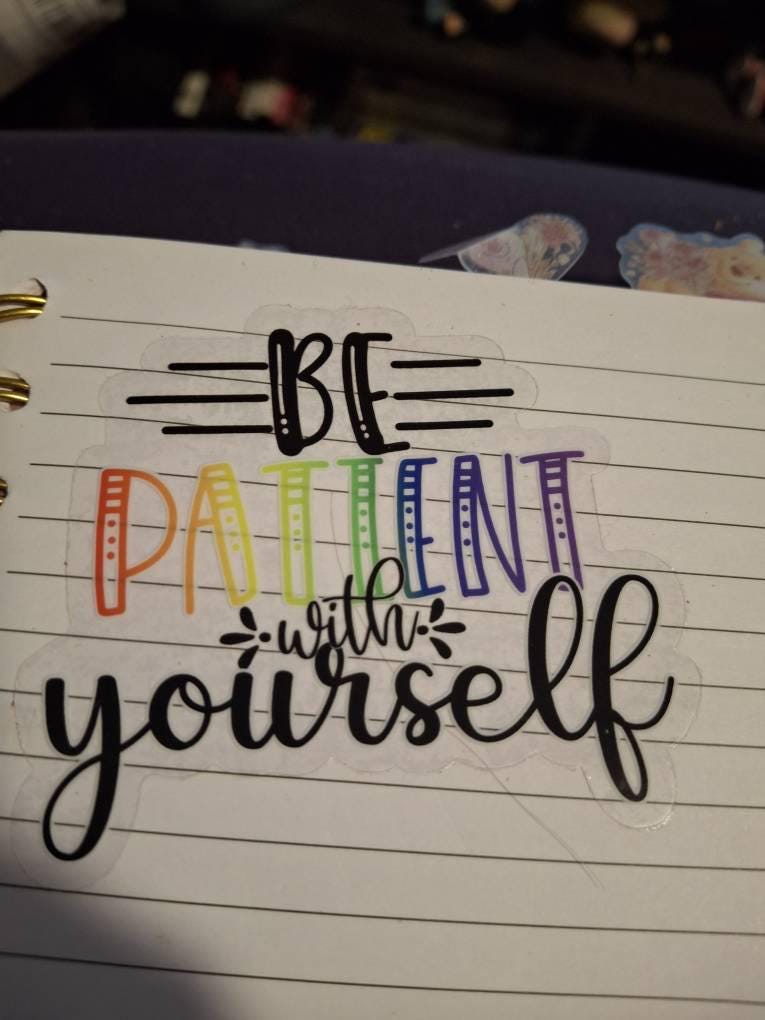 BE
PATIENT
with
yourself